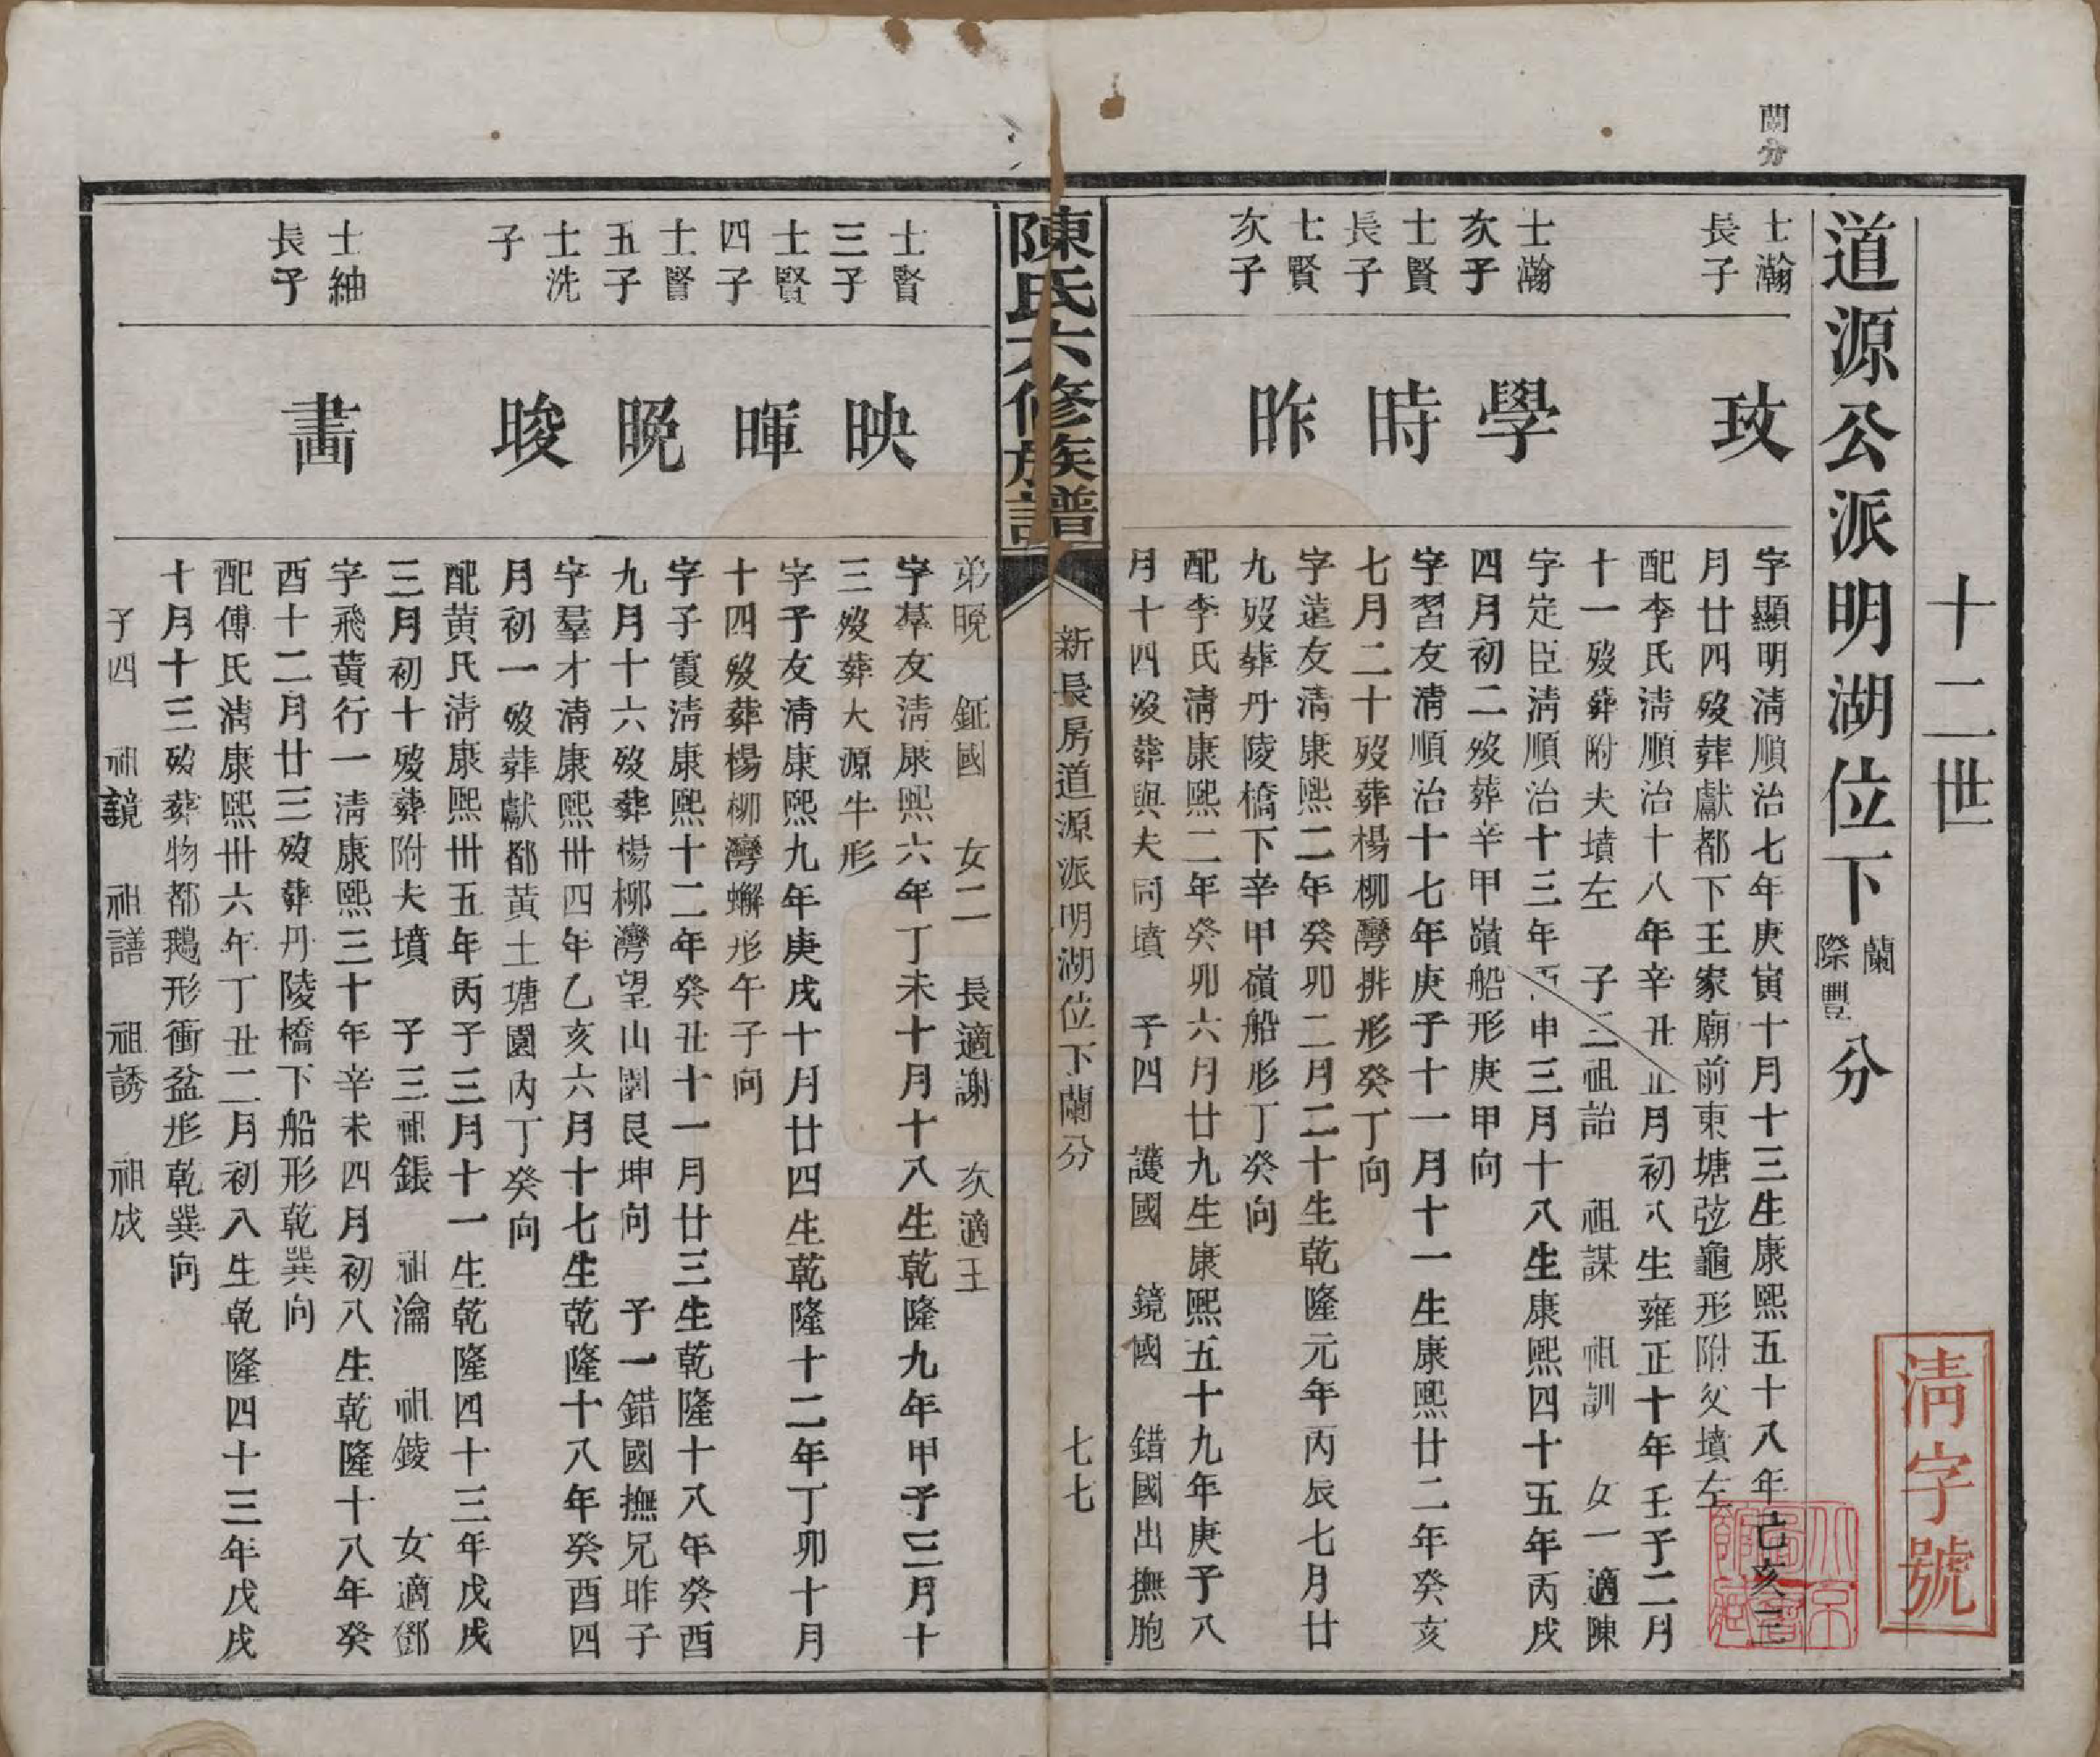 蘭分
十二世
道源公派明湖位下蘭際豐分
清字號
士瀚長子
玫
字顯明淸順治七年庚寅十月十三生康熙五十八年己亥三
月廿四歿葬獻都下王家廟前東塘弦龜形附父墳左
配李氏淸順治十八年辛丑正月初八生雍正十年壬子二月
十一歿葬附夫墳左 子三祖詒 祖謀 祖訓 女一適陳
士瀚次子
學
字定臣淸順治十三年丙申三月十八生康熙四十五年丙戌
四月初二歿葬辛甲嶺船形庚甲向
士賢長子
時
字習友淸順治十七年庚子十一月十一生康熙廿二年癸亥
七月二十歿葬楊柳灣排形癸丁向
士賢次子
昨
字遠友淸康熙二年癸卯二月二十生乾隆元年丙辰七月廿
九歿葬丹陵橋下辛甲嶺船形丁癸向
配李氏淸康熙二年癸卯六月廿九生康熙五十九年庚子八
月十四歿葬與夫同墳 子四 護國 鏡國 錯國出撫胞
陳氏六修族譜
新長房道源派明湖位下蘭分
七七
弟晩 鉦國 女二 長適謝 次適王
士賢三子
映
字羣友淸康熙六年丁未十月十八生乾隆九年甲子三月十
三歿葬大源牛形
士賢四子
暉
字予友淸康熙九年庚戌十月廿四生乾隆十二年丁卯十月
十四歿葬楊柳灣蠏形午子向
士賢五子
晩
字子霞淸康熙十二年癸丑十一月廿三生乾隆十八年癸酉
九月十六歿葬楊柳灣望山園艮坤向 子一錯國撫兄昨子
士洗子
晙
字羣才淸康熙卅四年乙亥六月十七生乾隆十八年癸酉四
月初一歿葬獻都黃土塘園內丁癸向
配黃氏淸康熙卅五年丙子三月十一生乾隆四十三年戊戌
三月初十歿葬附夫墳 子三祖鋹 祖瀹 祖錂 女適鄧
士紬長子
畵
字飛黃行一淸康熙三十年辛未四月初八生乾隆十八年癸
酉十二月廿三歿葬丹陵橋下船形乾巽向
配傅氏淸康熙卅六年丁丑二月初八生乾隆四十三年戊戌
十月十三歿葬物都鵝形衝盆形乾巽向
子四 祖譪 祖譱 祖誘 祖成